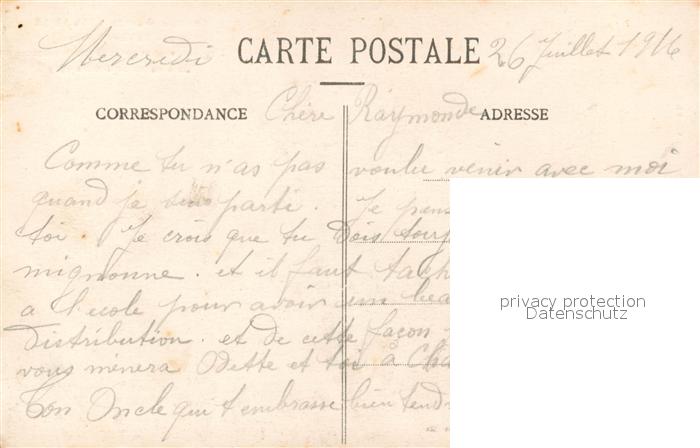 Mercredi CARTE POSTALE 26 Juillet 1916
CORRESPONDANCE Chère Raymonde ADRESSE
Comme tu n'as pas voulu venir avec moi
quand je suis parti. Je
toi. Je crois que tu Dois
mignonne. et il faut
a l'ecole pour avoir un
distribution. et de cette façon
vous mènera Odette et toi à
Ton Oncle qui t'embrasse bien
privacy protection
Datenschutz